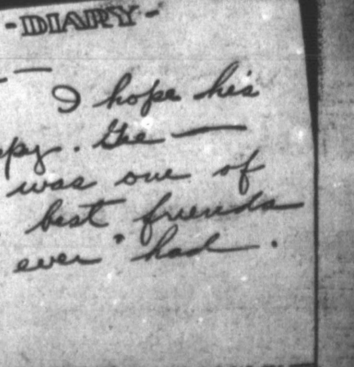 -DIARY-
—
I hope he's
ppy. The —
was one of
best friends
ever had.